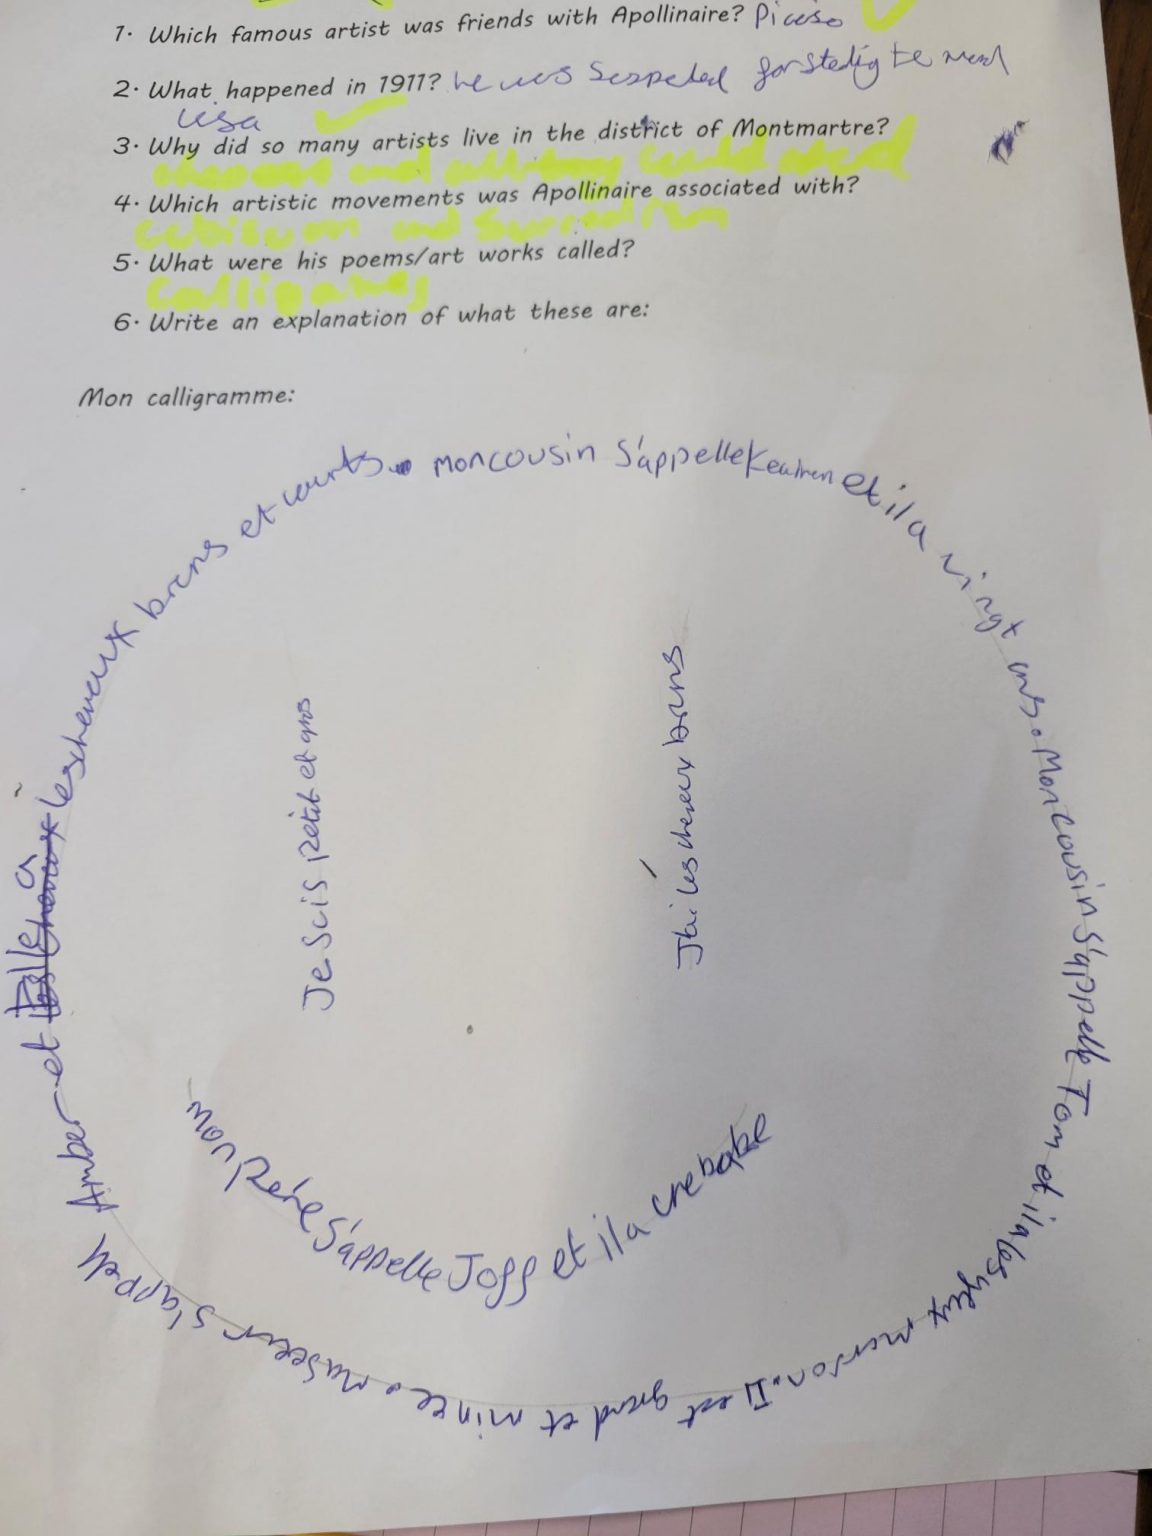 1. Which famous artist was friends with Apollinaire? Picaso
2. What happened in 1911? he was Suspected for steling te
3. Why did so many artists live in the district of Montmartre?
and could
4. Which artistic movements was Apollinaire associated with?
and
5. What were his poems/art works called?
6. Write an explanation of what these are:
Mon calligramme:
mon cousin s'appelle et il a vingt ans. Mon cousin s'appelle Tom et il a les yeux marron. Il est grand et mince. ma Seeur s'appell Amber et elle a les cheveux bruns et courts.
Je Scis petit et gros
J'ai les cheveux bruns
mon Pére s'appelle Joff et il a une babe